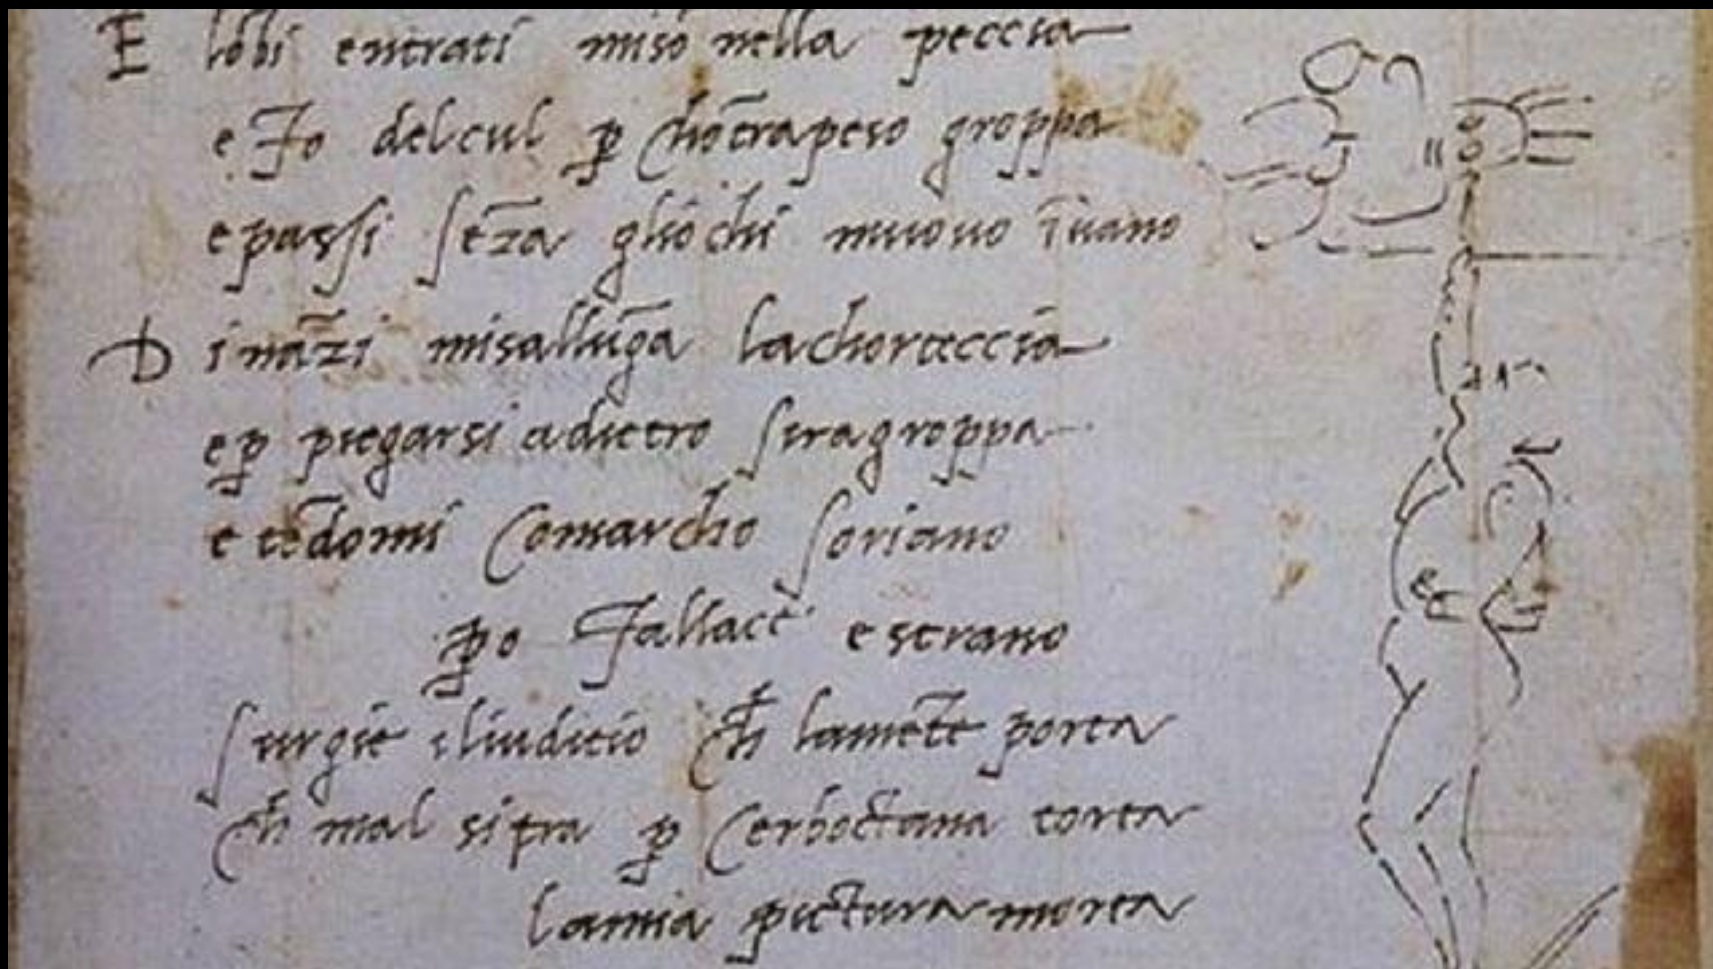 E lōbi entrati miso nella peccia
e Fo del cul p̱ chōtrapeso groppa
e passi seza gliochi muouo īuano
Dināzi misallūga lachorteccia
e p̱ piegarsi adietro siragroppa
e tēdomi Comarcho soriano
p̱o Fallace e strano
surgie iliuditio ch̄ lamēte porta
ch̄ mal si tra p̱ Cerboctana torta
lamia pictura morta